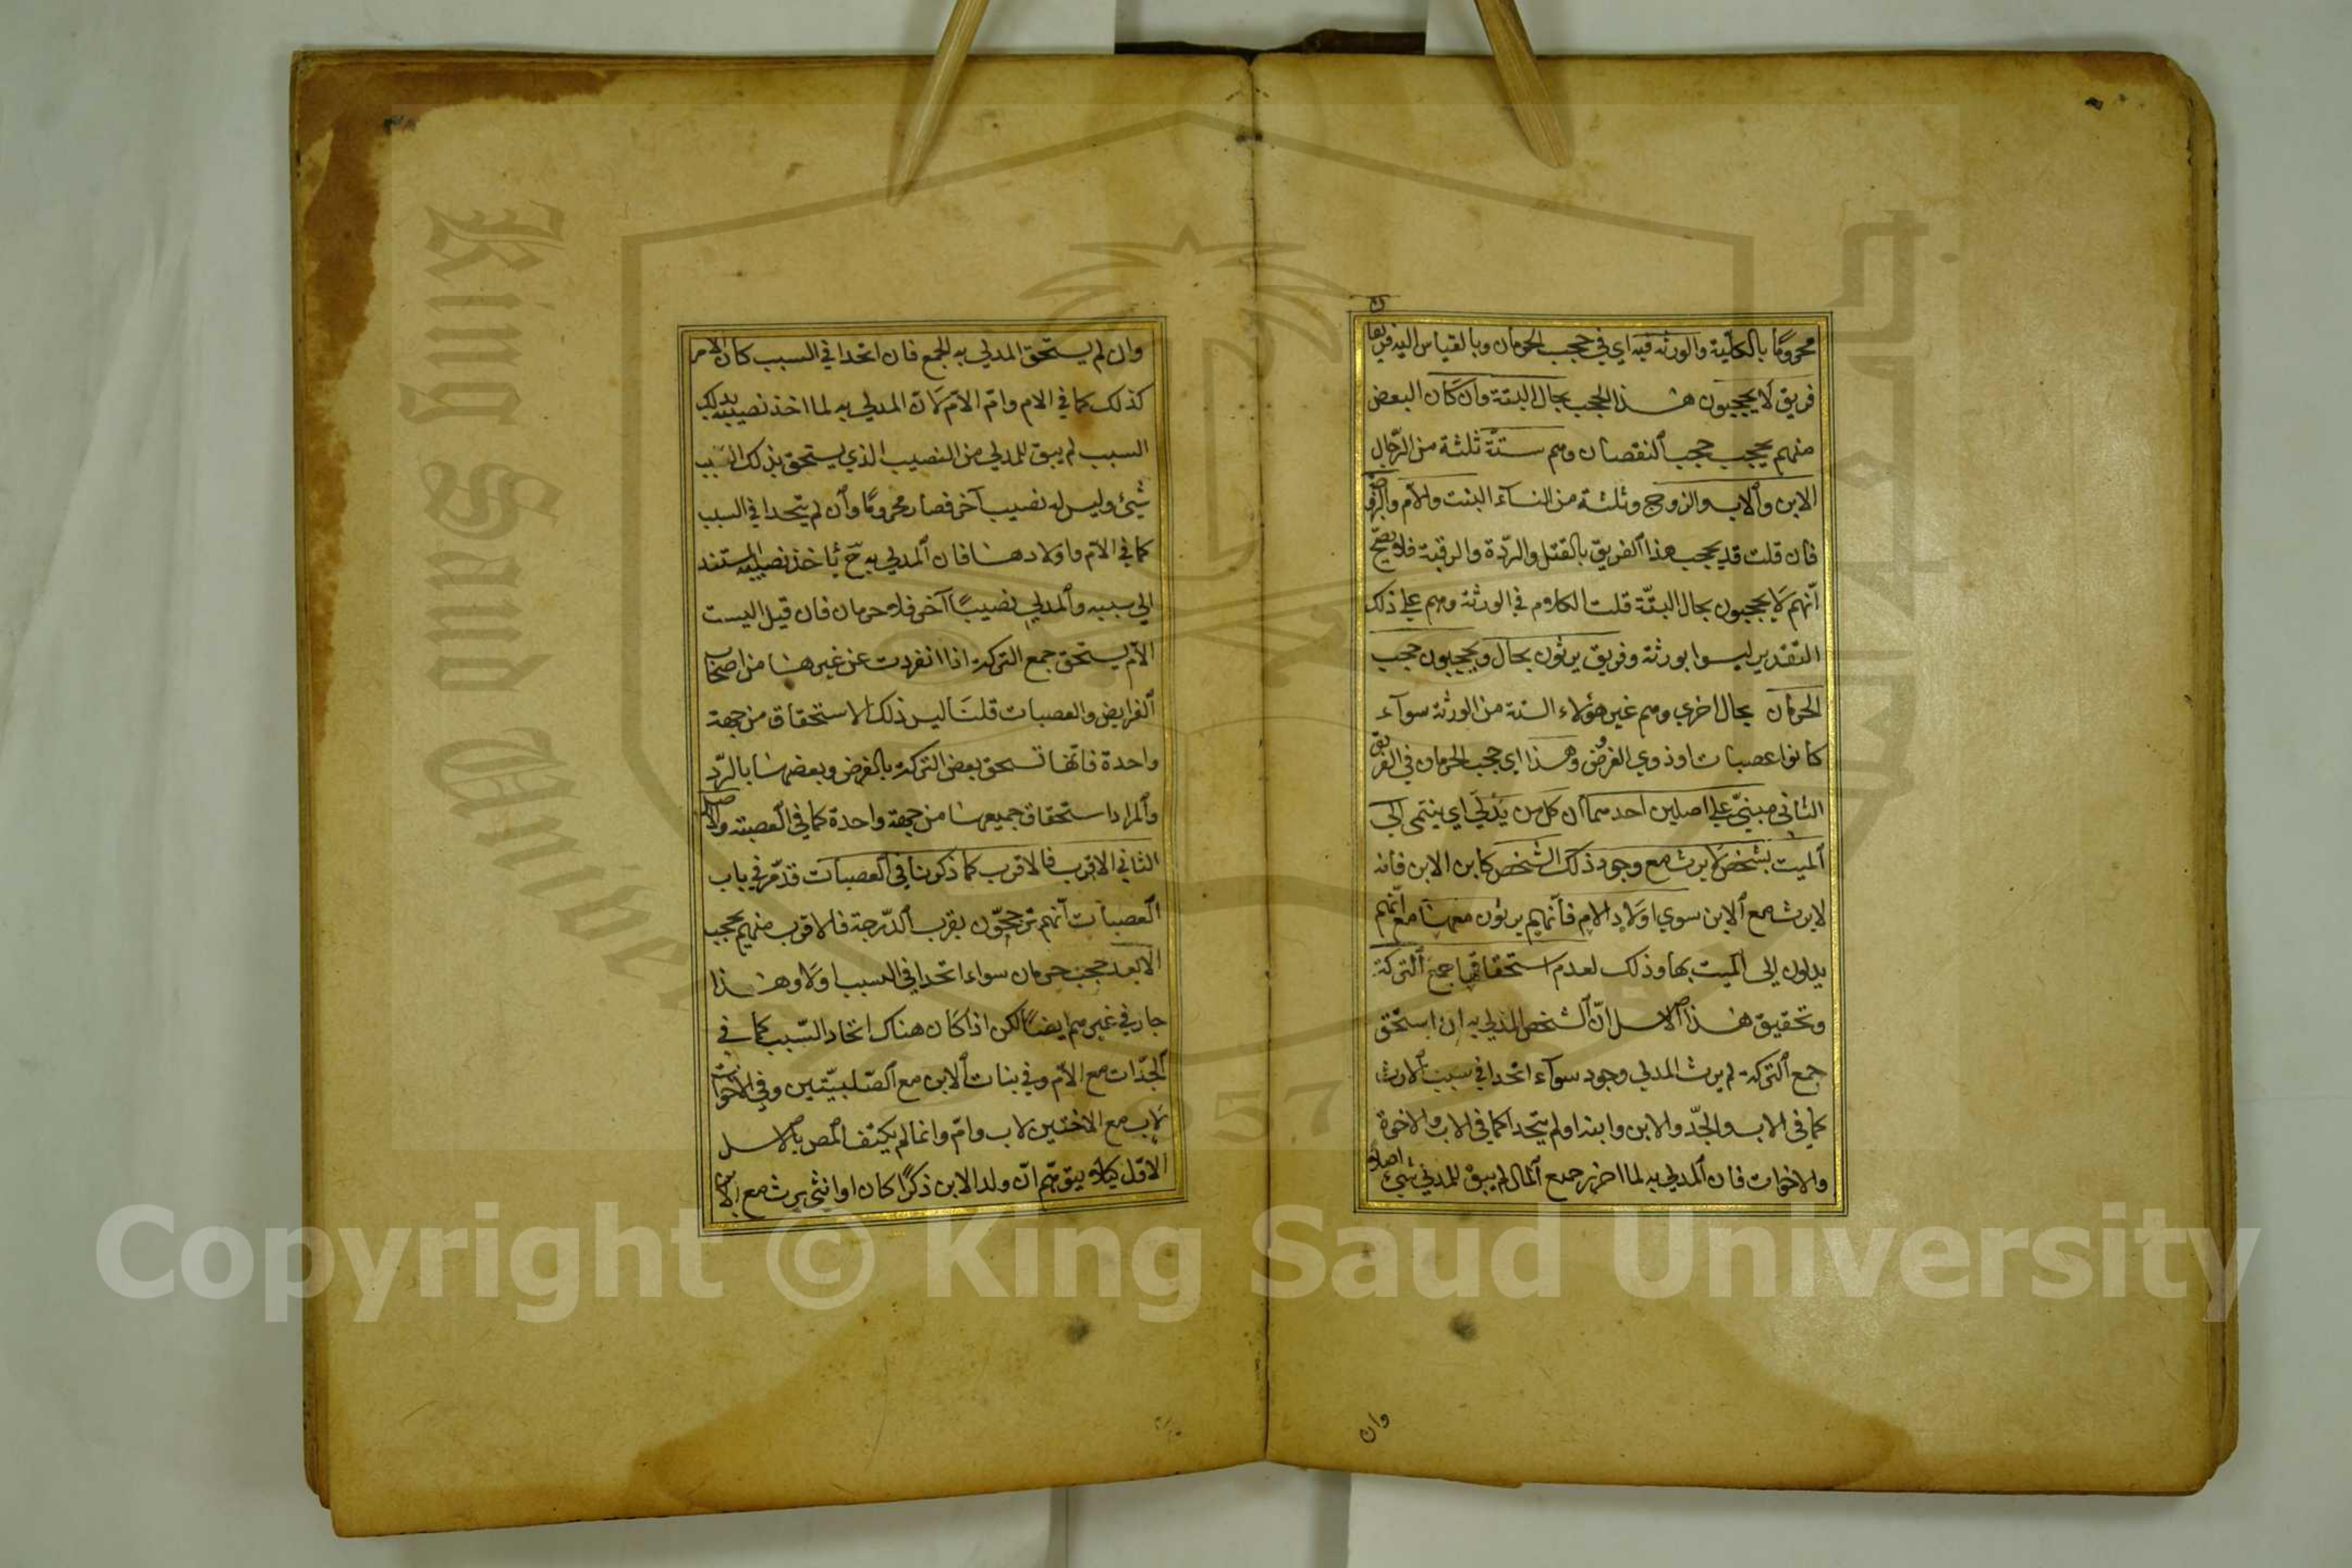 محرومًا بالكلية والورثة فيه اي في حجب الحرمان وبالقياس اليه فريقان
فريق لا يحجبون هذا الحجب بحال البتة وان كان البعض
منهم يحجب حجب النقصان وهم ستة ثلثة من الرجال
الابن والاب والزوج وثلثة من النساء البنت والام والزوجة
فان قلت قد يحجب هذا الفريق بالقتل والردة والرقية فلا يصح
انهم لا يحجبون بحال البتة قلت الكلام في الورثة وهم على ذلك
التقدير ليسوا بورثة وفريق يرثون بحال ويحجبون حجب
الحرمان بحال اخرى وهم غير هؤلاء الستة من الورثة سواء
كانوا عصبات او ذوي الفروض وهذا اي حجب الحرمان في الفريق
الثاني مبني على اصلين احدهما ان كل من يدلي اي ينتمي الى
الميت بشخص لا يرث مع وجود ذلك الشخص كابن الابن فانه
لا يرث مع الابن سوى اولاد الام فانهم يرثون معها مع انهم
يدلون الى الميت بها وذلك لعدم استحقاقها جميع التركة
وتحقيق هذا الاصل ان الشخص المدلى به ان استحق
جميع التركة لم يرث المدلي وجود سواء اتحدا في سبب الارث
كما في الاب والجد والابن وابنه او لم يتحدا كما في الاب والاخوة
والاخوات فان المدلى به لما احرز جميع المال لم يبق للمدلي شيئ اصلا
وان
وان لم يستحق المدلى به الجميع فان اتحدا في السبب كان الامر
كذلك كما في الام وام الام لان المدلى به لما اخذ نصيبه بذلك
السبب لم يبق للمدلي من النصيب الذي يستحق بذلك السبب
شيئ وليس له نصيب آخر فصار محرومًا وان لم يتحدا في السبب
كما في الام واولادها فان المدلى به ح يأخذ نصيبه المستند
الى سببه والمدلي نصيبًا آخر فلا حرمان فان قيل اليست
الام يستحق جمع التركة اذا انفردت عن غيرها من اصحاب
الفرايض والعصبات قلنا ليس ذلك الاستحقاق من جهة
واحدة فانها تستحق بعض التركة بالفرض وبعضها بالرد
والمراد استحقاق جميعها من جهة واحدة كما في العصبة والاصل
الثاني الاقرب فالاقرب كما ذكرنا في العصبات قد مر في باب
العصبات انهم يرجحون بقرب الدرجة فالاقرب منهم يحجب
الابعد حجب حرمان سواء اتحدا في السبب او لا وهذا
جار في غيرهم ايضًا لكن اذا كان هناك اتحاد السبب كما في
الجدات مع الام وفي بنات الابن مع الصلبيتين وفي الاخوات
لاب مع الاختين لاب وام وانما لم يكتف المص بالاصل
الاول كيلا يتوهم ان ولد الابن ذكرًا كان او انثى يرث مع الابن